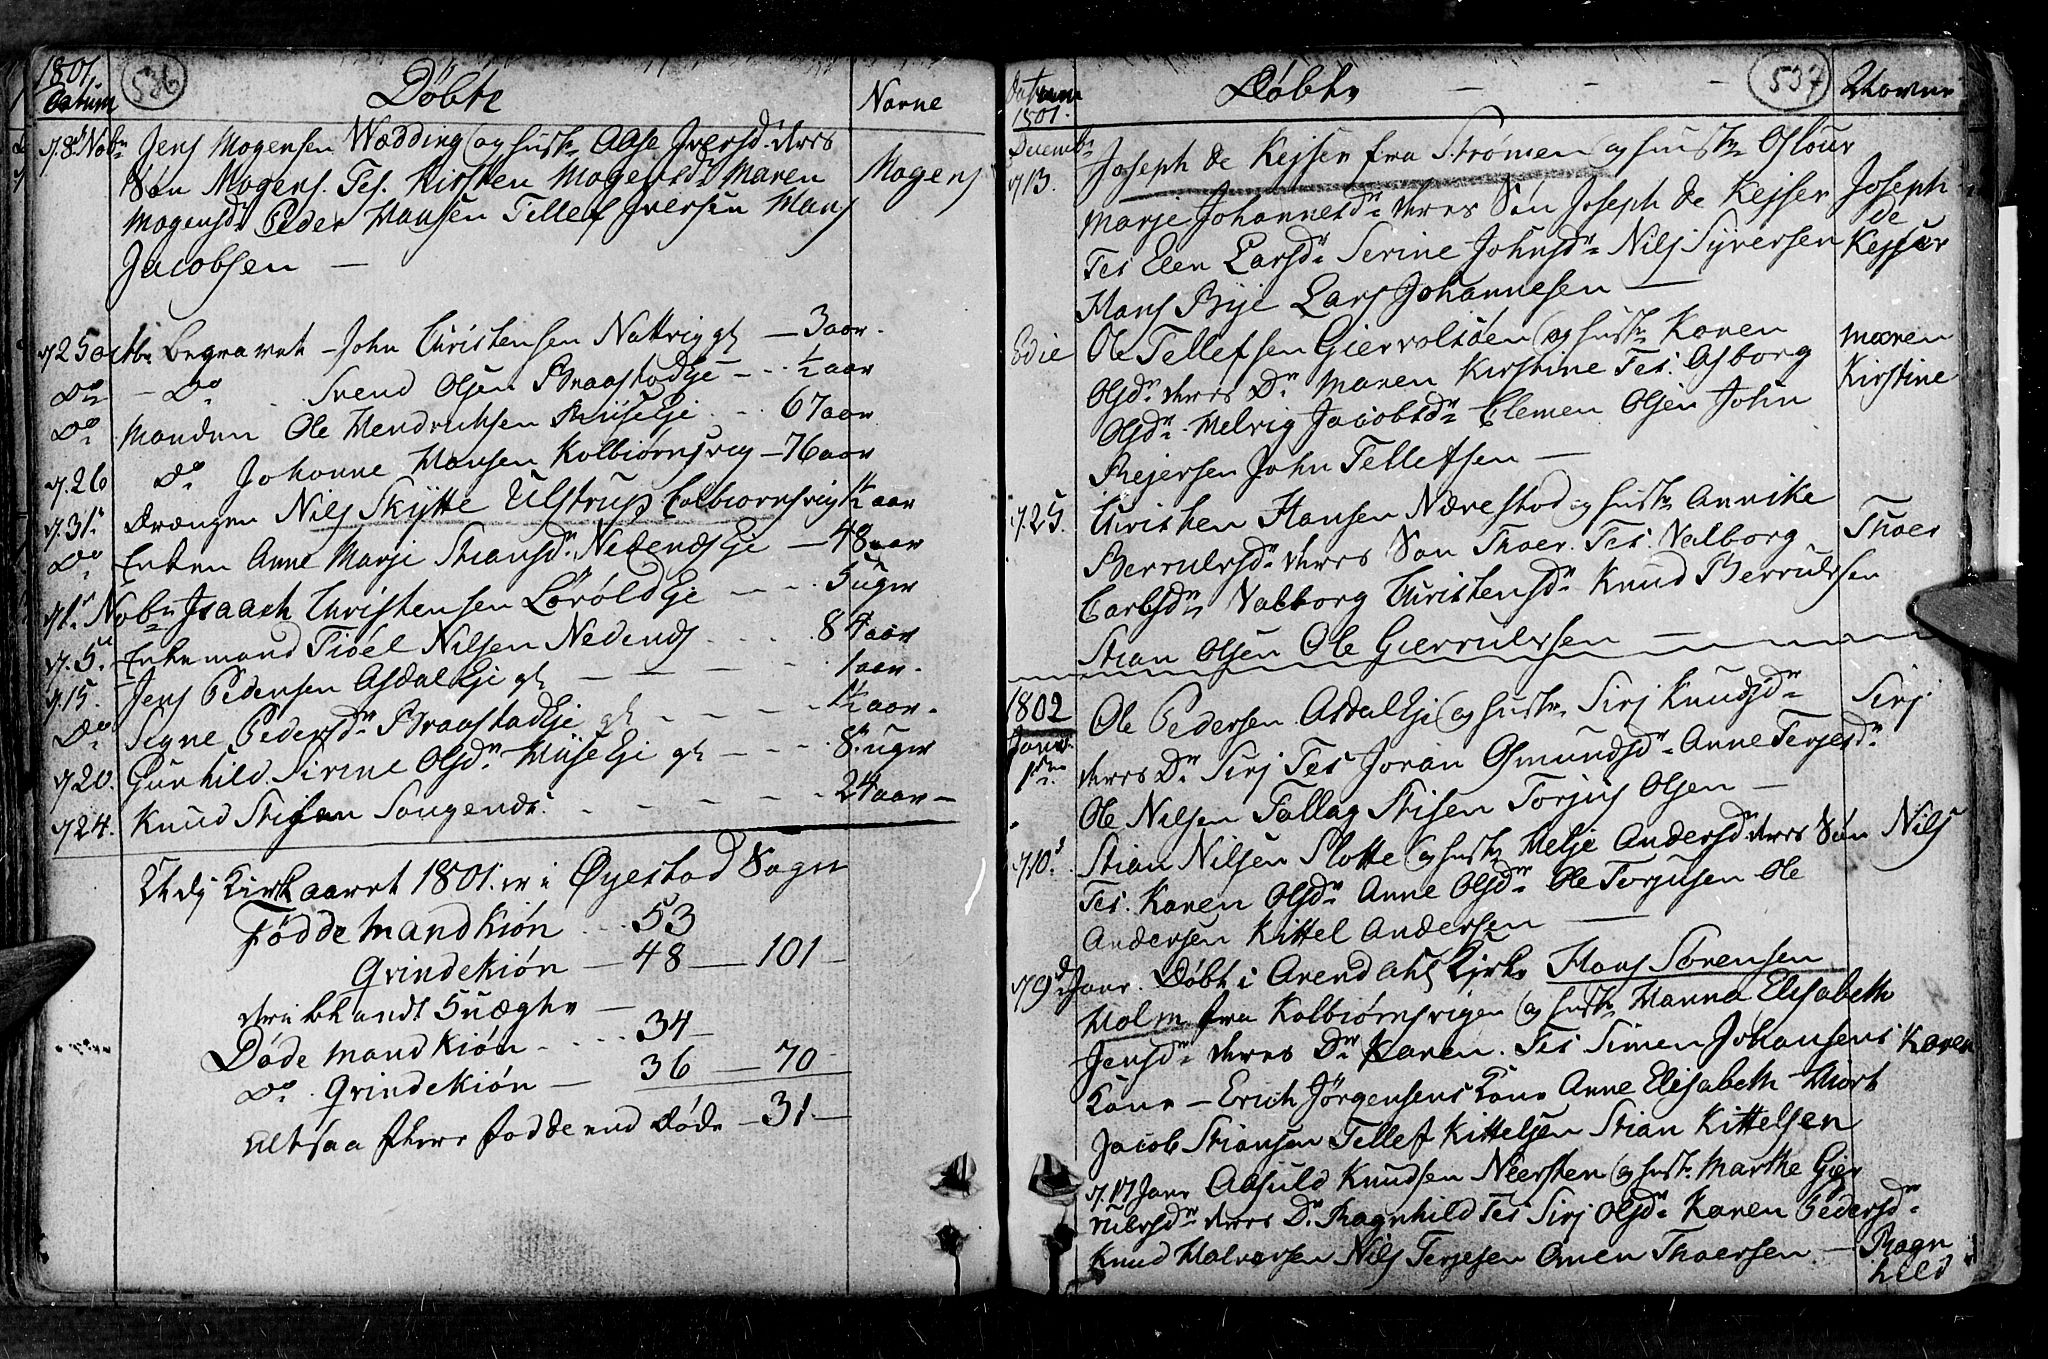 1801. 536
Datum Döbte Navne
d. 8de Nobr Jens Mogensen Wædding og hustr Aase Iversdr. deres
Søn Mogens. Tes. Kirsten Mogensdr Maren Mogens
Mogensdr Peder Hansen Tellef Iversen Hans
Jacobsen —
d. 25 octbr begravet John Christensen Nattvig gl — 3 aar.
Do — Do Svend Olsen BraastadEje — ½ aar
Do Manden Ole Hendrichsen EJe . . 67 aar
d. 26 Do Johanne Hansen Kolbiörnsvig — 76 aar
d. 31te Drængen Nils Skÿtte Ulstrup Colbiornsvig ½ aar
Do Enken Anne Marje Stiansdr NedenesEje — 48 aar
d. 1ste Nobr Isaach Christensen Eje — — 5 uger
d. 5te Enkemand Tiöel Nilsen Nedenes . . . 84 aar
d. 15 Jens Pedersen Asdal Eje gl — — — 1 aar.
Do Signe Pedersdr BraastadEje gl — — — 1½ aar.
d. 20. Gunhild Sirine Olsdr Eje gl — — — 8te uger
d. 24. Knud Stisen Songenes. — — — — 24 aar —
Udj Kirkeaaret 1801. er i Øyestad Sogn
Födde Mandkiön . . . 53
Qvindekiön — 48 — 101 —
deriblandt 5 uægte —
Döde Mandkiön . . . . 34 —
Do. Qvindekiön — 36 — 70 —
Altsaa flere födde end döde — 31 —
Datum 1801. Döbte — — — 537 Navne
Decembr
d. 13. Joseph de Kejser fra Strømen og hustr Oslour
Marje Johannesdr deres Søn Joseph de Kejser Joseph
Tes Elen Larsdr Serine Johnsdr Nils Syversen de
Hans Bÿe Lars Johannesen — Kejser
Edie Ole Tellefsen Giervoldsen og hustr Karen Maren
Olsdr deres Dr Maren Kirstine Tes. Asborg Kirstine
Olsdr Helvig Jacobsdr Clemen Olsen John
Rejersen John Tellefsen —
d. 25. Christen Hansen Nærestad og hustr Annike
Berrulvsdr deres Søn Thoer. Tes. Valborg Thoer
Carlsdr Valborg Christensdr Knud Berrulvsen
Stian Olsen Ole Gierrulvsen —
1802
Januar 1ste Ole Pedersen AsdalEje og hustr Sirj Knudsdr Sirj
deres Dr Sirj Tes Joran Osmundsdr Anne Terjesdr
Ole Nilsen Tallag Stisen Torjus Olsen —
d. 10de Stian Nilsen Slotte og hustr Helje Andersdr deres Søn Nils
Tes. Karen Olsdr Anne Olsdr Ole Torjusen Ole
Andersen Kittel Andersen —
d. 9de Janr. Döbt i Arendahls Kirke Hans Sörensen
Holm fra Kolbiörnsvigen og hustr Hanna Elisabeth
Jensdr deres Dr Karen. Tes Simen Johansens Karen
Kone — Erich Jörgensens Kone Anne Elisabeth
Jacob Stiansen Tellef Kittelsen Stian Kittelsen
d. 17 Janr Aasuld Knudsen Neersten og hustr Marthe Gier
rulvsdr deres Dr. Ragnhild Tes Sirj Olsdr Karen Pedersdr
Knud Halvorsen Nils Terjesen Omen Thoersen — Ragn
hild